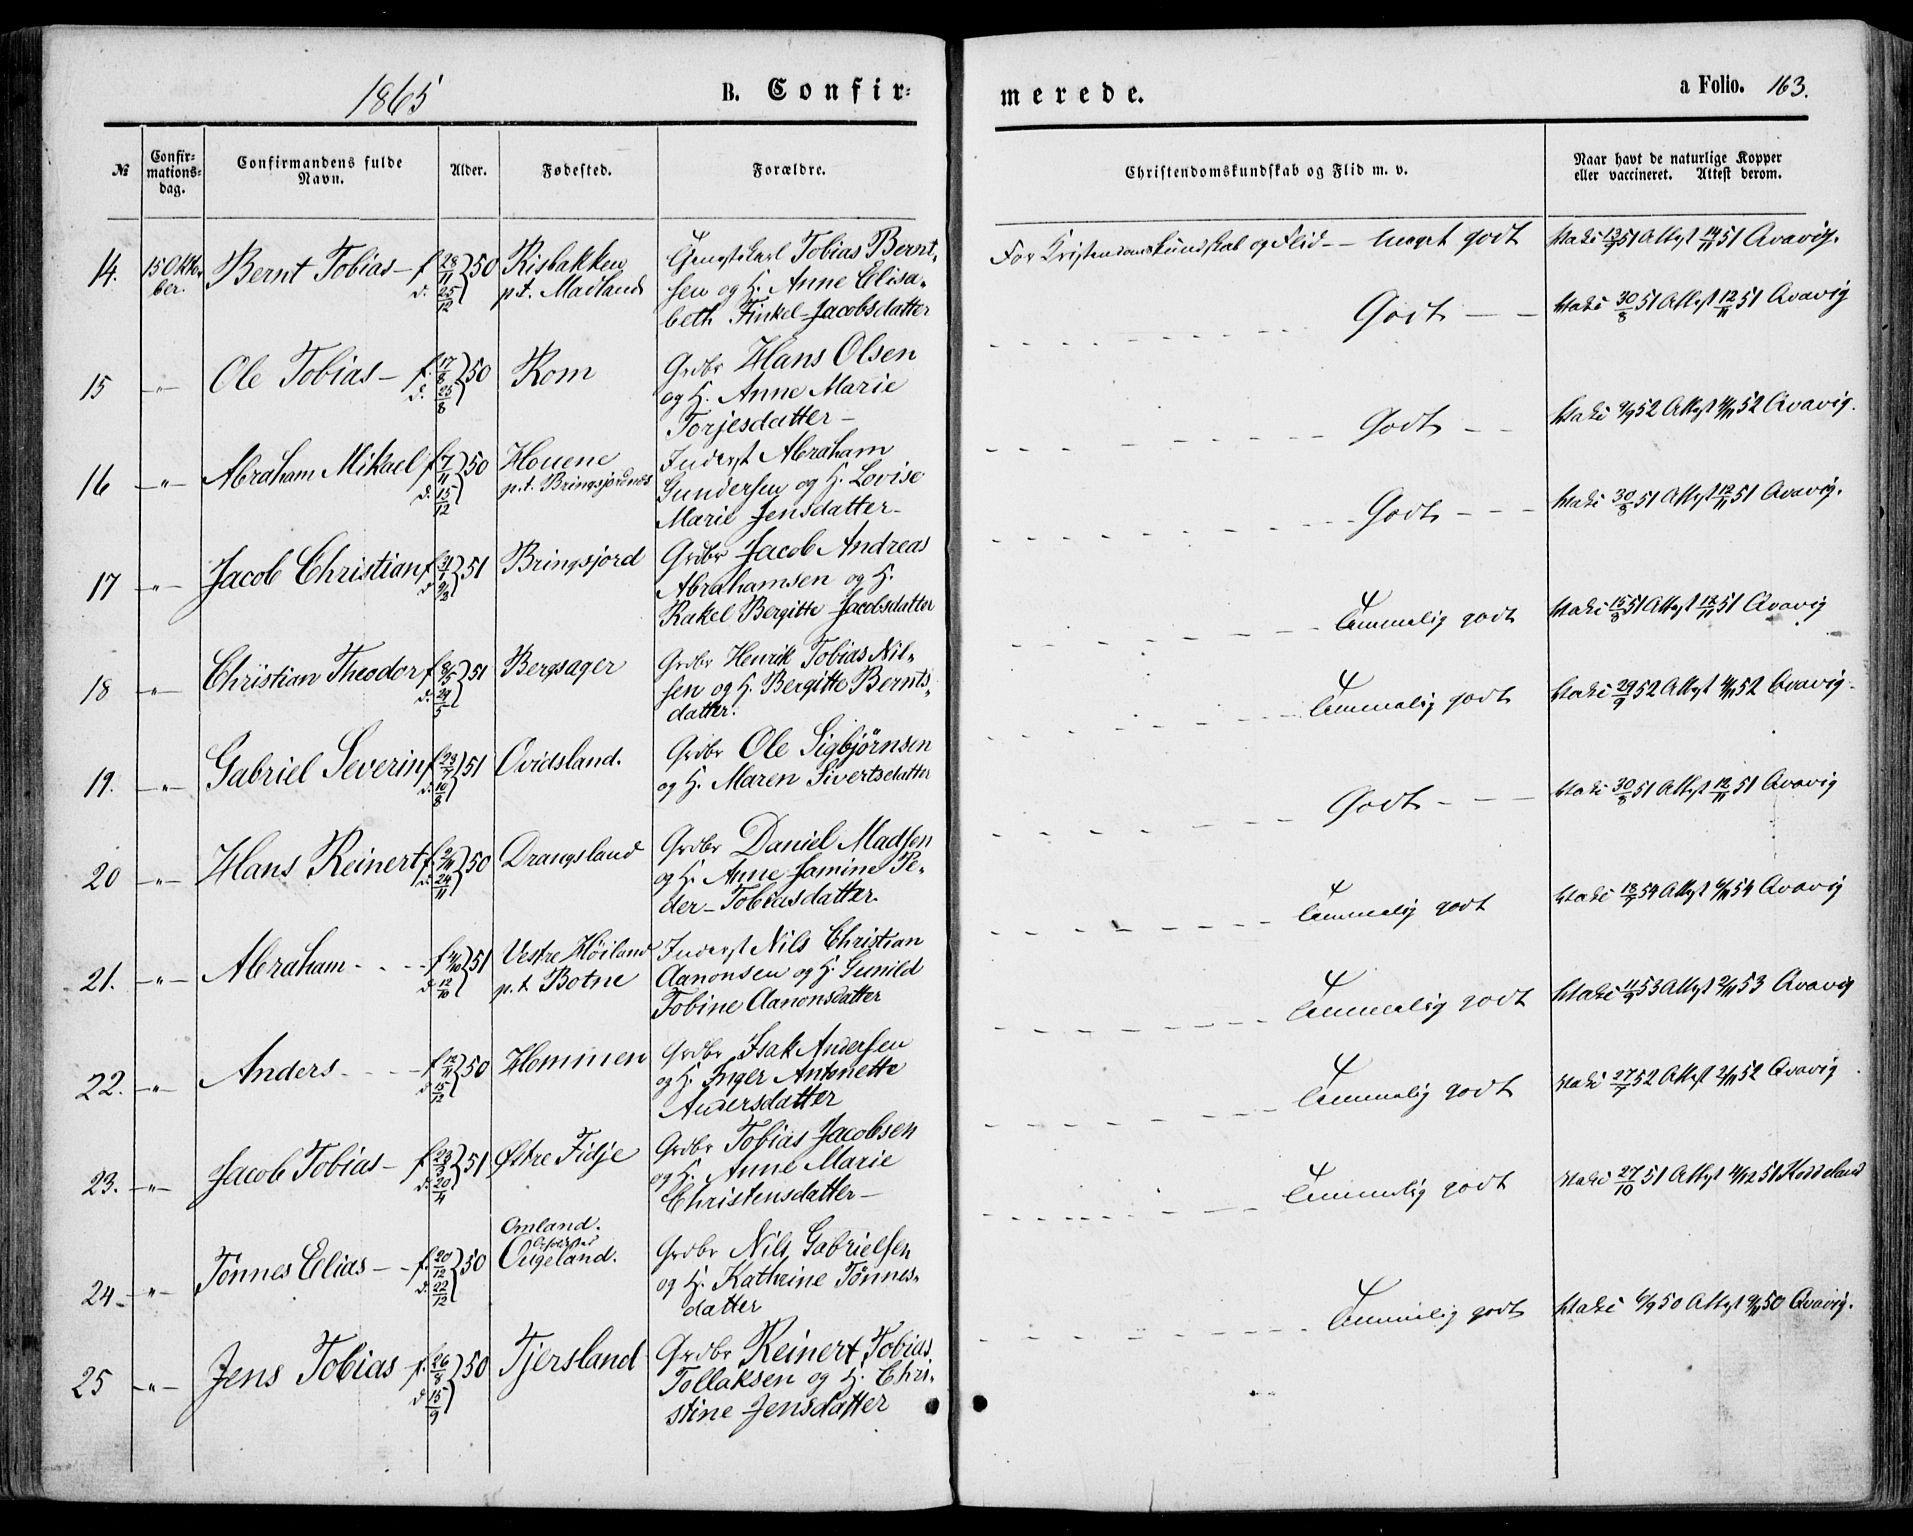 1865
B. Confir=
merede.
a Folio. 163.
№
Confir=
mations=
dag.
Confirmandens fulde
Navn.
Alder.
Fødested.
Forældre.
Christendomskundskab og Flid m. v.
Naar havt de naturlige Kopper
eller vaccineret. Attest derom.
14. 15 Oktbr. Bernt Tobias – f. 28/11 50 Risbakken Tobias Bernt=
ber. d. 25/12 p.t. Mailand sen og H. Anne Elisa=
beth Finkel Jacobsdatter
For Kristendomskundskab og Flid – – meget godt Vaxi 13/9 51 Attest 14/11 51 Qvavig.
15 –"– Ole Tobias – f. 17/8 50 Rom Grdbr Hans Olsen
d. 25/8 og H. Anne Marie
Torjesdatter –
Godt – – Vaxi 30/8 51 Attest 12/11 51 Qvavig
16 –"– Abraham Mikael f. 7/11 50 Houene Inderst Abraham
d. 15/12 p.t. Bringsjordnes Gundersen og H. Lovise
Marie Jensdatter –
Godt – – Vaxi 52 Attest 52 Qvavig.
17 –"– Jacob Christian f. 51 Bringsjord Grdbr Jacob Andreas
d. Abrahamsen og H.
Rakel Bergitte Jacobsdatter
Godt – – – Vaxi 30/8 51 Attest 12/11 51 Qvavig.
18 –"– Christian Theodor f. 8/5 51 Bergsager Grdbr Henrik Tobias Nil=
d. 29/5 sen og H. Bergitte Bernts=
datter.
Temmelig godt Vaxi 15/8 51 Attest 51 Qvavig
19. –"– Gabriel Severin f. 23/7 51 Ovidsland. Grdbr Ole Sigbjørnsen
d. 10/8 og H. Maren Sivertsdatter
Temmelig godt Vaxi 29/9 52 Attest 52 Qvavig.
20 –"– Hans Reinert f. 2/11 50 Drangsland Grdbr Daniel Madsen
d. 24/11 og H. Anne Jamine Pe=
der – Tobiasdatter.
Godt – – – Vaxi 30/8 51 Attest 12/11 51 Qvavig
21. –"– Abraham – – – f. 51 Vestre Høiland Inderst Nils Christian
d. 12/10 p.t. Botne Aanonsen og H. Gunild
Tobine Aanonsdatter
Temmelig godt Vaxi 54 Attest 54 Qvavig
22. –"– Anders – – – f. 12/11 50 Hommen Grdbr Isak Andersen
d. 15/12 og H. Inger Antonette
Andersdatter
Temmelig godt Vaxi 11/9 53 Attest 53 Qvavig
23. –"– Jacob Tobias – f. 23/3 51 Østre Fidje Grdbr Tobias Jacobsen
d. 20/4 og H. Anne Marie
Christensdatter –
Temmelig godt Vaxi 27/7 52 Attest 52 Qvavig
Omland.
24. –"– Tønnes Elias – – f. 20/12 50 Øigeland. Grdbr Nils Gabrielsen
d. 22/12 og H. Kathrine Tønnes=
datter
Temmelig godt Vaxi 27/10 51 Attest 4/12 51 Heddeland
25 –"– Jens Tobias – f. 26/8 50 Tjersland Grdbr Reinert Tobias
d. 15/9 Tollaksen og H. Chri=
stine Jensdatter
Temmelig godt Vaxi 50 Attest 50 Qvavig.